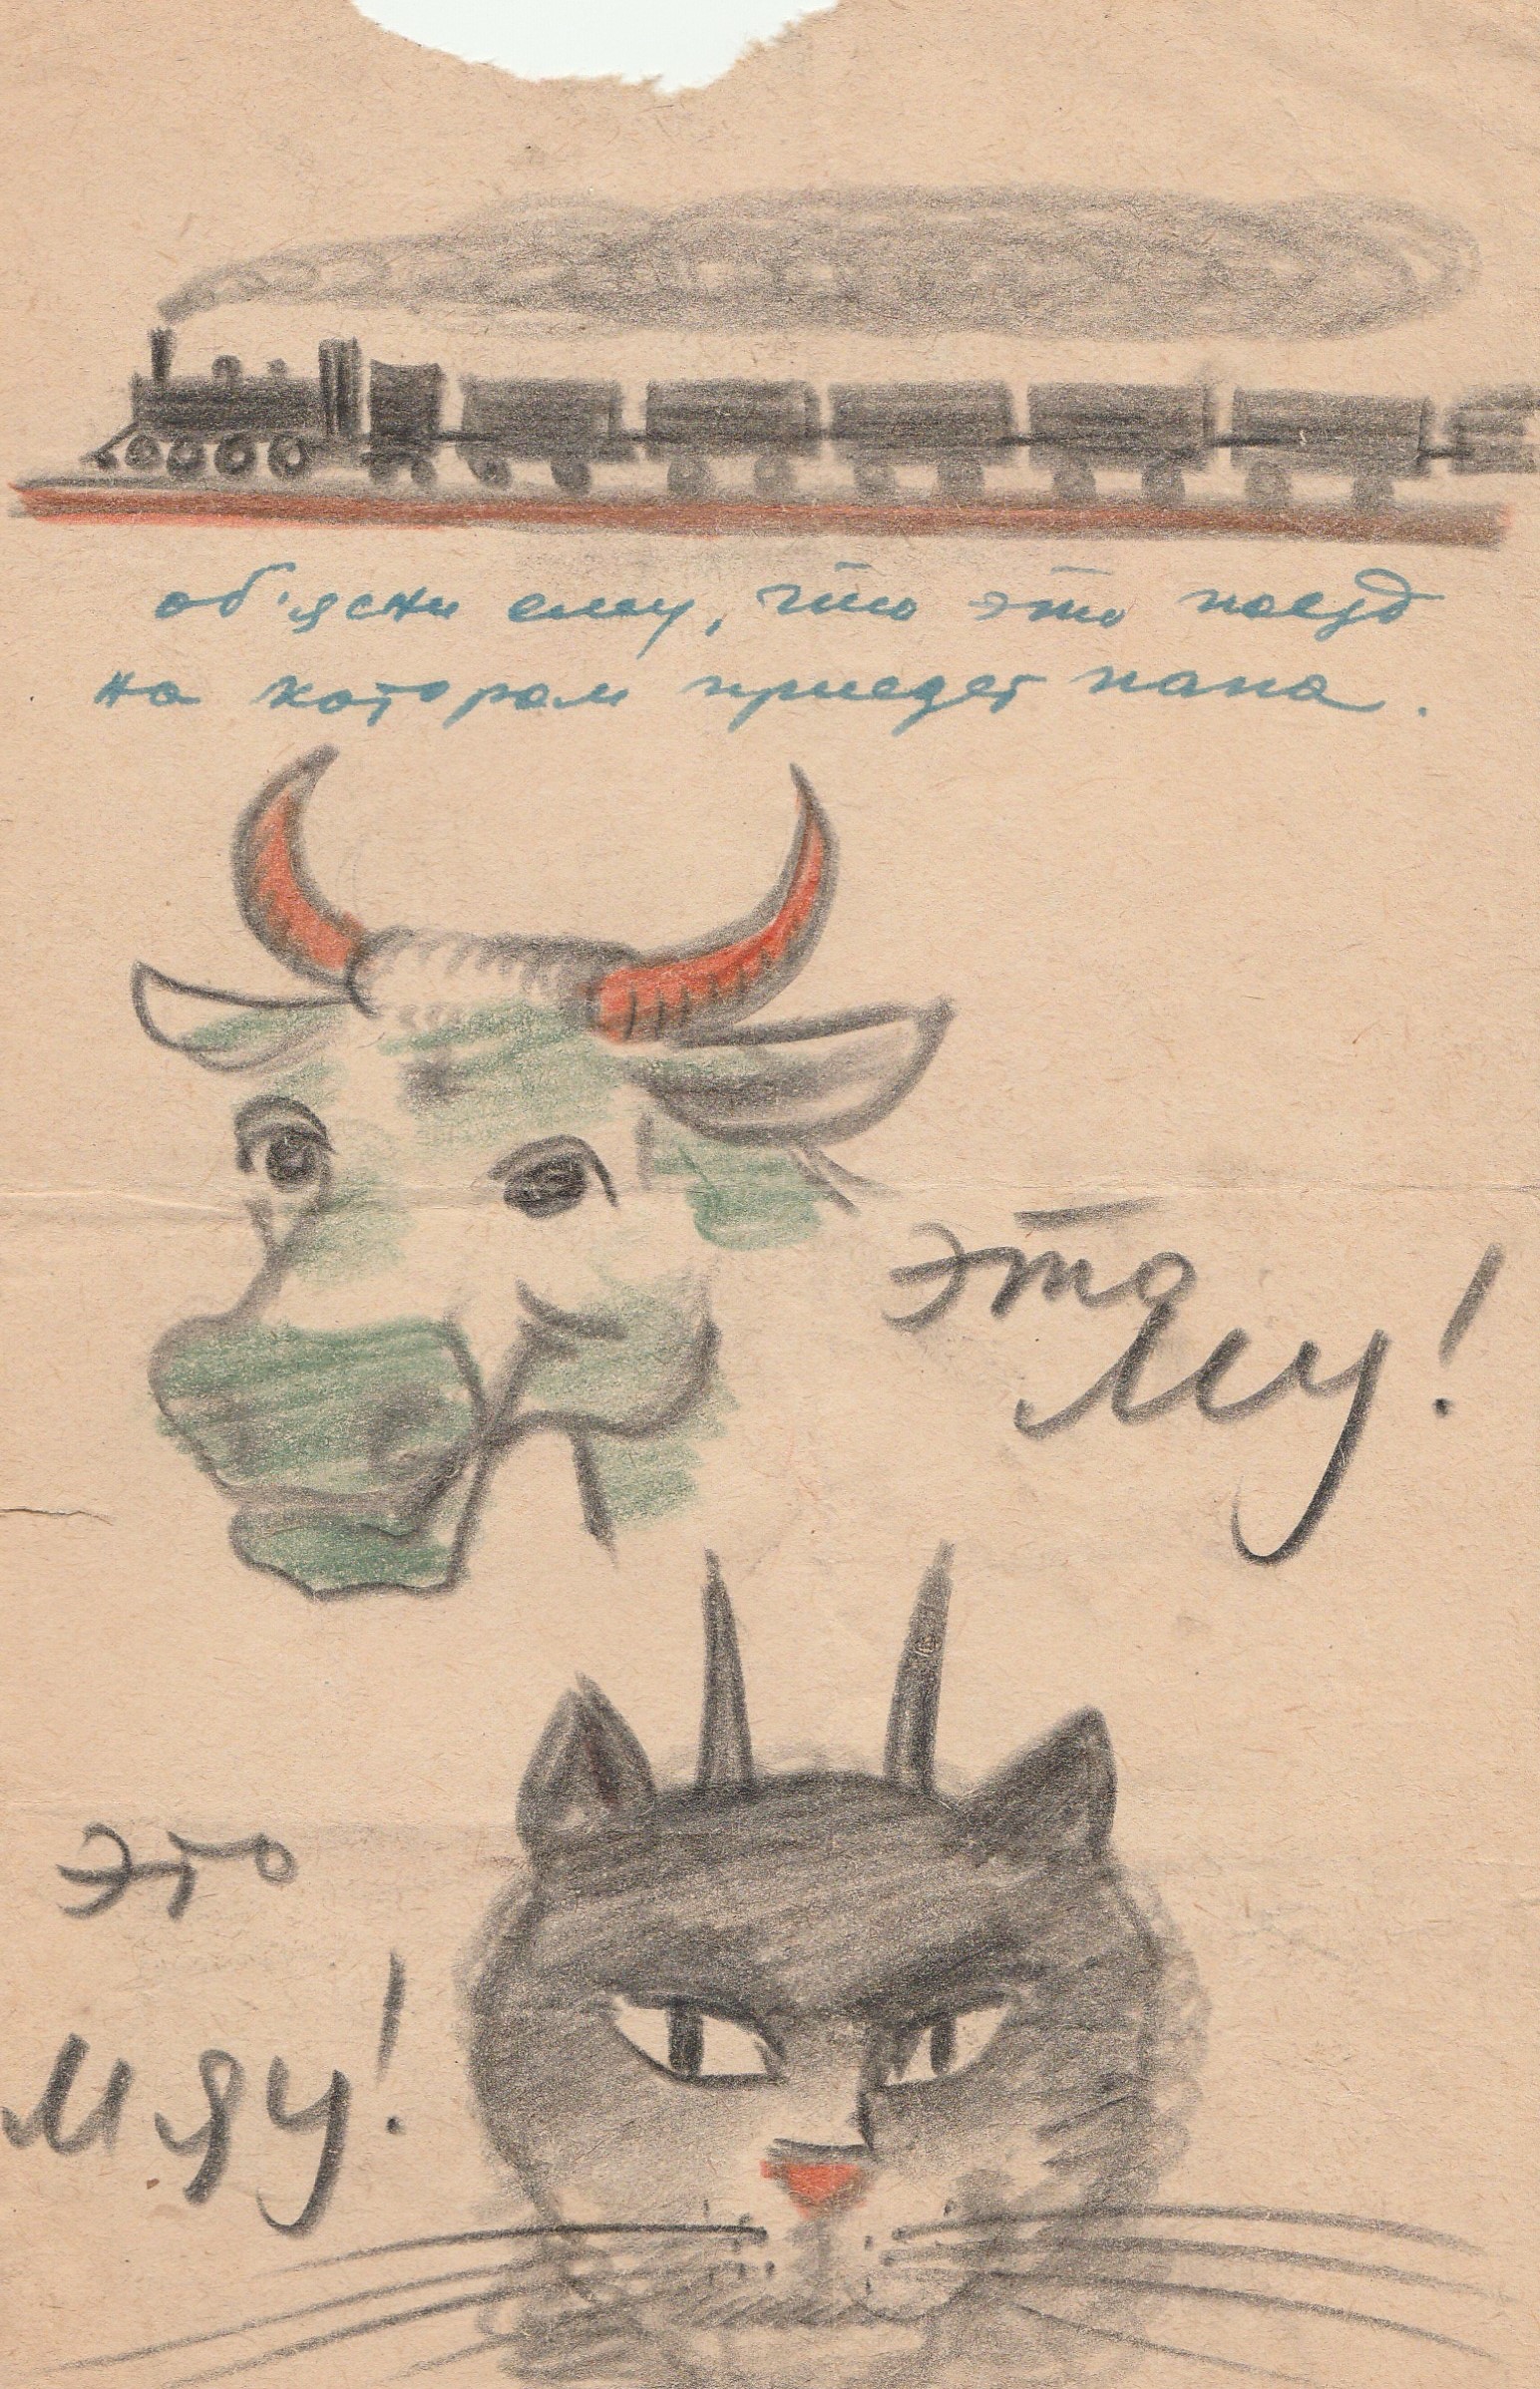 об'ясни ему, что это поезд
на котором приедет папа.
это
му!
это
мяу!